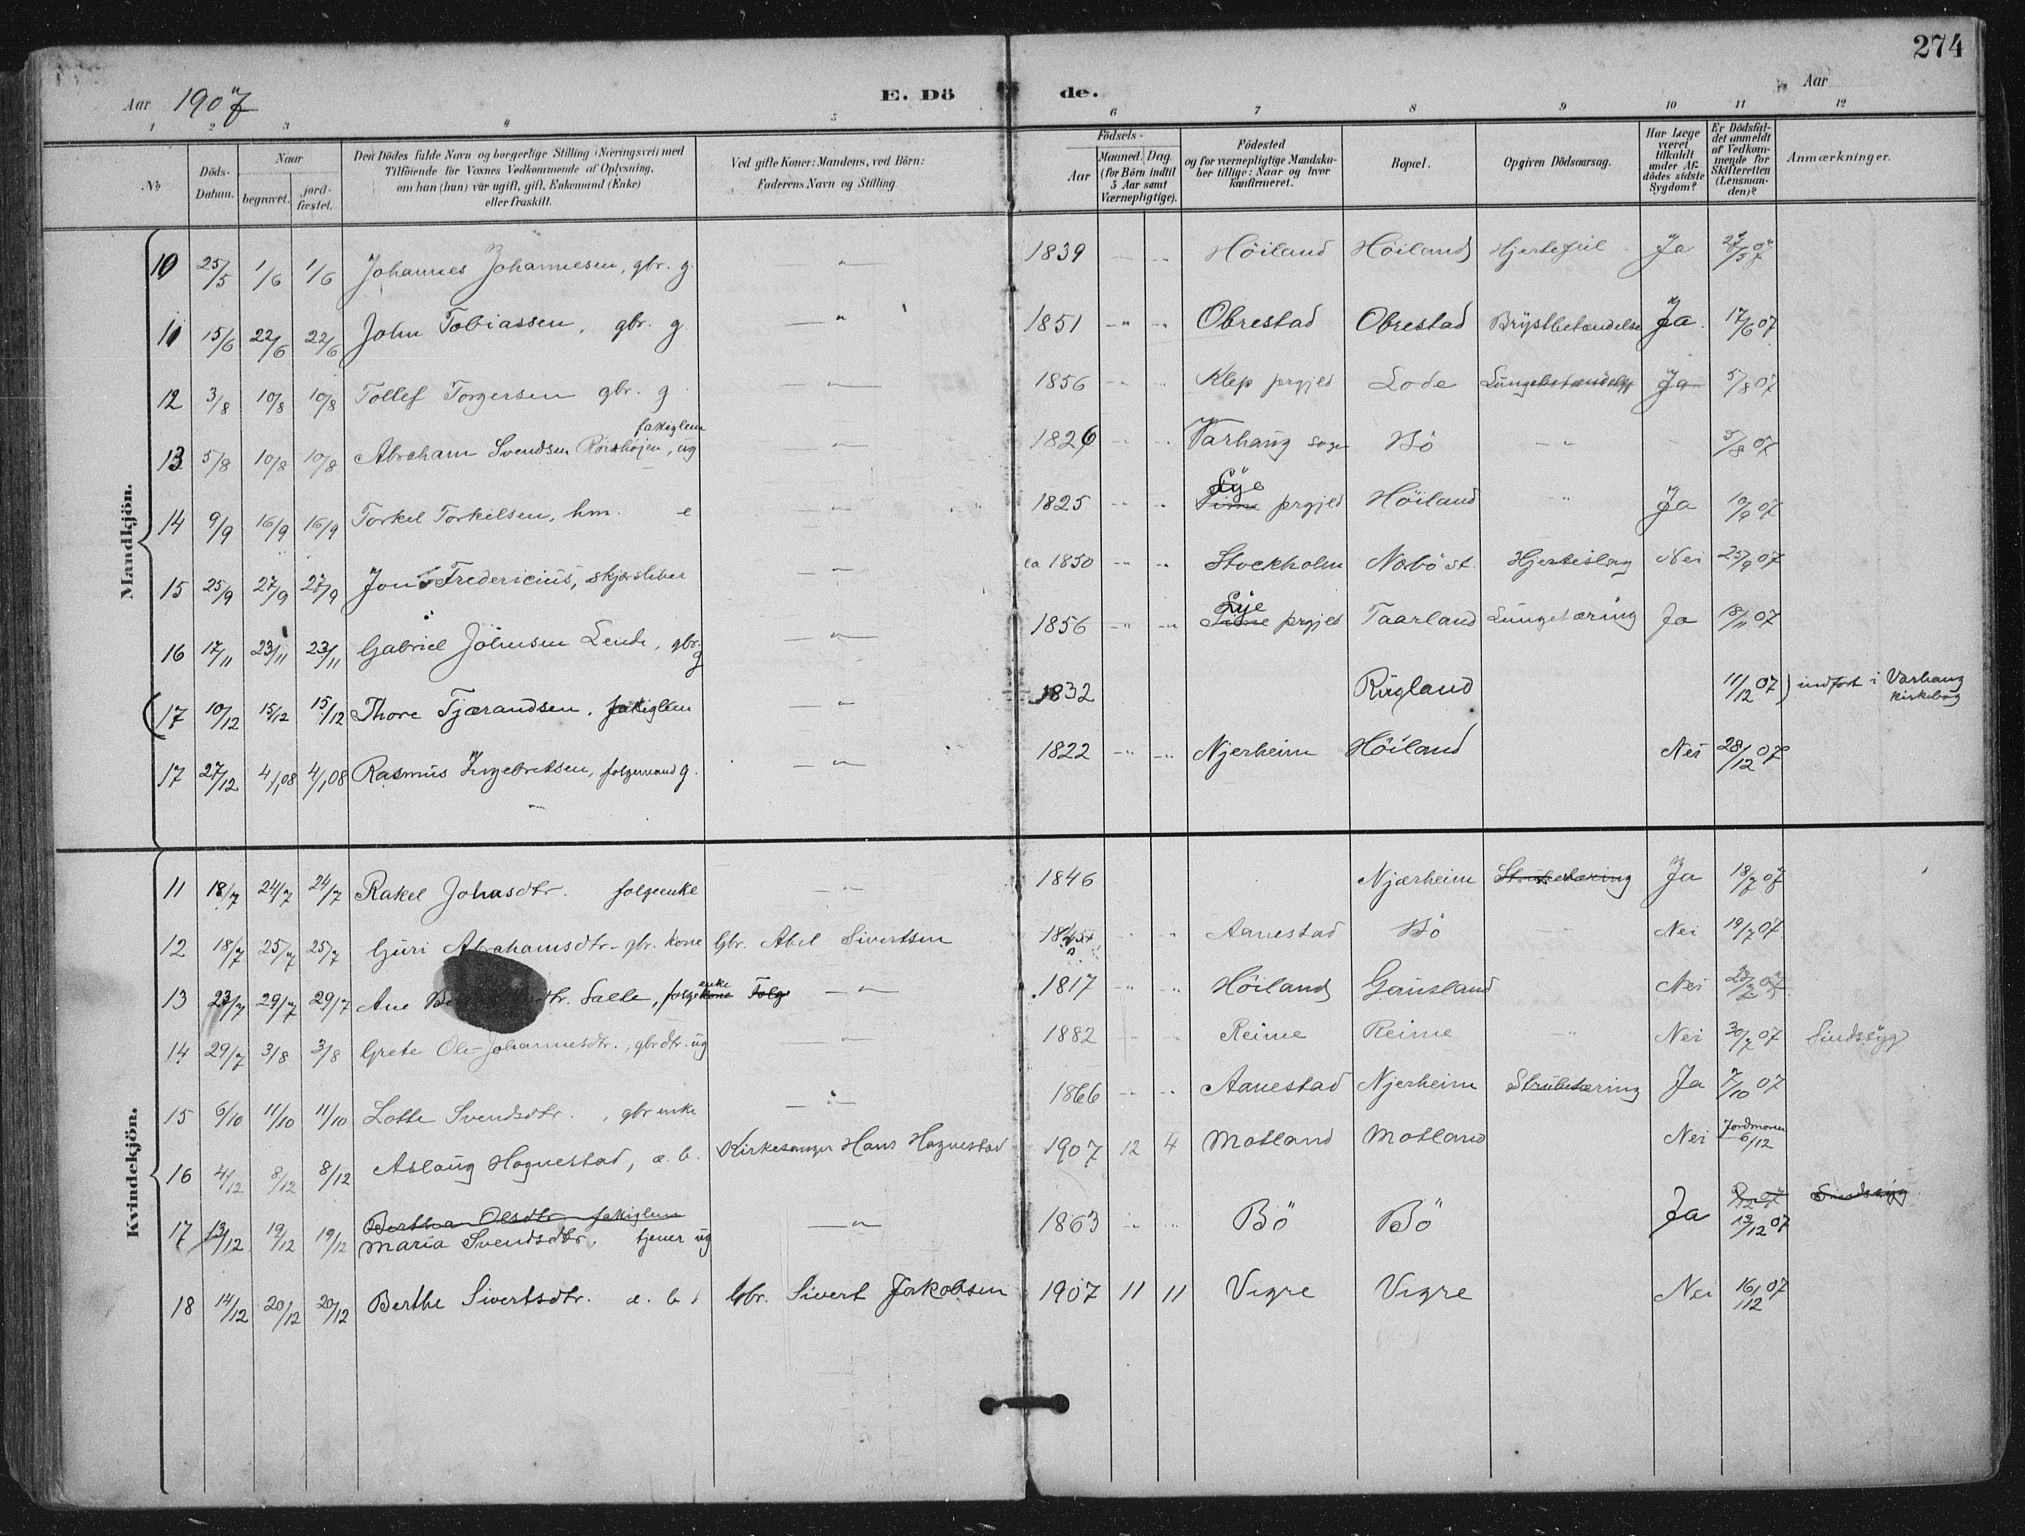 274
Aar 1907 E. Dö de. Aar
1 2 3 4 5 6 7 8 9 10 11 12
No Döds-Datum. Naar begravet. jord-fæstet. Den Dödes fulde Navn og borgerlige Stilling (Næringsvei) med Tilföiende for Voxnes Vedkommende af Oplysning, om han (hun) var ugift, gift, Enkemand (Enke) eller fraskilt. Ved gifte Koner: Mandens, ved Börn: Faderens Navn og Stilling. Födsels- Aar Maaned. Dag. (for Börn indtil 5 Aar samt Værnepligtige). Födested og for værnepligtige Mandskaber tillige: Naar og hvor konfirmeret. Bopæl. Opgiven Dödsaarsag. Har Læge været tilkaldt under Afdödes sidste Sygdom? Er Dödsfaldet anmeldt af Vedkommende for Skifteretten (Lensmanden)? Anmærkninger.
Mandkjön.
10 25/5 1/6 1/6 Johannes Johannesen, gbr. g. — " — 1839 Höiland Höiland Hjertefeil Ja 27/5 07
11 15/6 22/6 22/6 John Tobiassen, gbr. g. — " — 1851 Obrestad Obrestad Brÿstbetændelse Ja 17/6 07
12 3/8 10/8 10/8 Tollef Torgersen gbr. g. — " — 1856 Klep prgjeld Lode Lungebetændelse Ja 5/8 07
fattiglem
13 5/8 10/8 10/8 Abraham Svendsen , ug — " — 1826 Varhaug sogn Bö — " — 5/8 07
Lÿe
14 9/9 16/9 16/9 Torkel Torkelsen, hm. e. " 1825 Time prgjeld Höiland " Ja 10/9 07
15 25/9 27/9 27/9 Jons Fredericius, skjærsliber — " — ca 1850 Stockholm Narbö st. Hjerteslag Nei 25/9 07
Lÿe
16 17/11 23/11 23/11 Gabriel Johnsen Lende, gbr. g — " — 1856 Time prgjeld Taarland Lungetæring Ja 18/11 07
(17 10/12 15/12 15/12 Thore Tjærandsen, fattiglem — " — 1832 Rügland 11/12 07) indfört i Varhaug kirkebog
17 27/12 4/1 08 4/1 08 Rasmus Ingebretsen, folgemand g. — " — 1822 Njerheim Höiland Nei 28/12 07
Kvindekjön.
11 18/7 24/7 24/7 Rakel Johnsdtr. folgeenke — " — 1846 Njærheim Strubetæring Ja 18/7 07
12 18/7 25/7 25/7 Guri Abrahamsdtr. gbr. kone Gbr. Abel Sivertsen Aanestad Bö Nei 19/7 07
enke
13 23/7 29/7 29/7 Ane dtr. Salte, folgekone Folg — " — 1817 Höiland Gausland Nei 07
14 29/7 3/8 3/8 Grete Ole-Johannesdtr., gbrdtr. ug — " — 1882 Reime Reime — " — Nei 30/7 07 Sindssÿg
15 6/10 11/10 11/10 Lotte Svendsdtr., gbr enke — " — 1866 Aanestad Njerheim Strubetæring Ja 7/10 07
16 4/12 8/12 8/12 Aslaug Hognestad, æ. b. Kirkesanger Hans Hognestad 1907 12 4 Motland Motland Nei Jordmoren 6/12
Bertha Olsdtr. fattiglem Sindssÿg
17 13/12 19/12 19/12 Maria Svendsdtr. tjener ug — " — 1863 Bö Bö Ja 13/12 07
18 14/12 20/12 20/12 Berthe Sivertsdtr. æ. b. Gbr. Sivert Jakobsen 1907 11 11 Vigre Vigre Nei 16/12 07